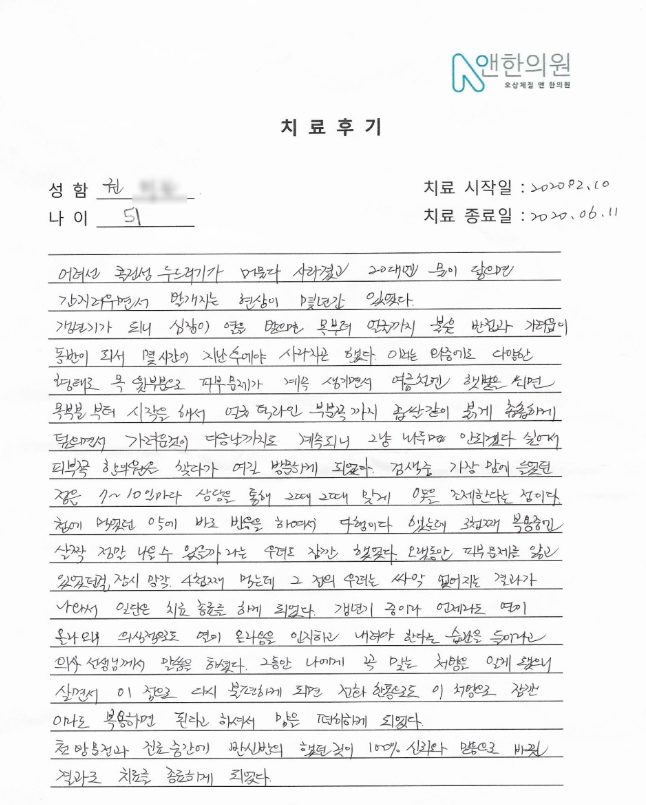 앤한의원
오상체질 앤 한의원
치료후기
성 함 권
치료 시작일 : 2020.02.10
나 이 51
치료 종료일 : 2020.06.11
어려선 콜린성 두드러기가 머물다 사라졌고 20대엔 물이 닿으면
간지러우면서 빨개지는 현상이 몇년간 있었다
갱년기가 되니 심장이 열을 받으면 목부터 얼굴까지 붉은 반점과 가려움이
동반이 되서 몇시간이 지난 후에야 사라지곤 했다. 이제는 다양한
형태로 목 윗부분으로 피부문제가 계속 생기면서 여름철엔 햇볕을 쐬면
목부분부터 시작을 해서 얼굴 턱라인 부분까지 좁쌀같이 붉게 촘촘하게
덮으면서 가려운것이 다음날까지도 계속되니 그냥 나두면 안되겠다 싶어서
피부쪽 한의원을 찾다가 여길 방문하게 되었다. 검색중 가장 맘에 들었던
점은 7~10일마다 상담을 통해 그때그때 맞게 약을 조제한다는 점이다.
첨에 먹었던 약에 바로 반응을 하여서 다행이다 했는데 3첩째 복용중엔
살짝 정말 나을 수 있을까 라는 우려도 잠깐 했었다. 오랫동안 피부문제로 앓고
있었던걸 잠시 망각. 4첩째 먹는데 그 전의 우려는 싸악 없어지는 결과가
나와서 일단은 치료 종료를 하게 되었다. 갱년기 중이라 언제라도 열이
올라오니 의식적으로 열이 올라옴을 인지하고 내려야 한다는 습관을 들이라고
의사 선생님께서 말씀을 하셨다. 그동안 나에게 꼭 맞는 처방을 알게 됐으니
살면서 이 점으로 다시 불편하게 되면 전화 한통으로도 이 처방으로 잠깐
이라도 복용하면 된다고 하셔서 맘은 편하게 되었다.
첫 방문전과 진료순간에 반신반의 했던것이 100% 신뢰와 믿음으로 바뀐
결과로 치료를 종료하게 되었다.